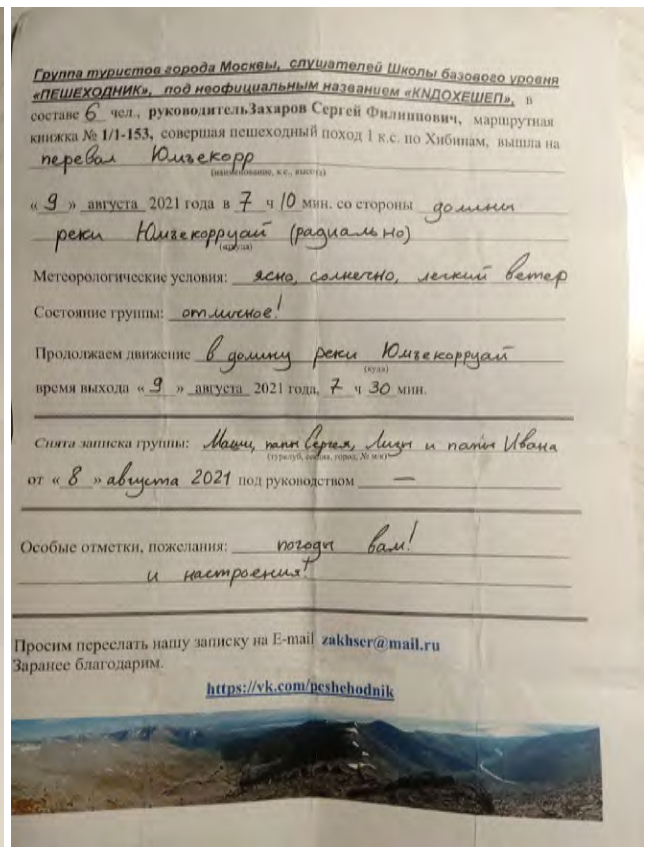 Группа туристов города Москвы, слушателей Школы базового уровня
«ПЕШЕХОДНИК», под неофициальным названием «KNДОХЕШЕП», в
составе 6 чел., руководительЗахаров Сергей Филиппович, маршрутная
книжка № 1/1-153, совершая пешеходный поход 1 к.с. по Хибинам, вышла на
перевал Юмъекорр
(наименование, к.с., высота)
« 9 » августа 2021 года в 7 ч 10 мин. со стороны долины
реки Юмъекорруай (радиально)
Метеорологические условия: ясно, солнечно, легкий ветер
Состояние группы: отличное!
Продолжаем движение в долину реки Юмъекорруай
(куда)
время выхода « 9 » августа 2021 года, 7 ч 30 мин.
Снята записка группы: Маши, папы Сергея, Лизы и папы Ивана
от « 8 » августа 2021 под руководством —
Особые отметки, пожелания: погоды вам!
и настроения!
Просим переслать нашу записку на E-mail zakhser@mail.ru
Заранее благодарим.
https://vk.com/peshehodnik